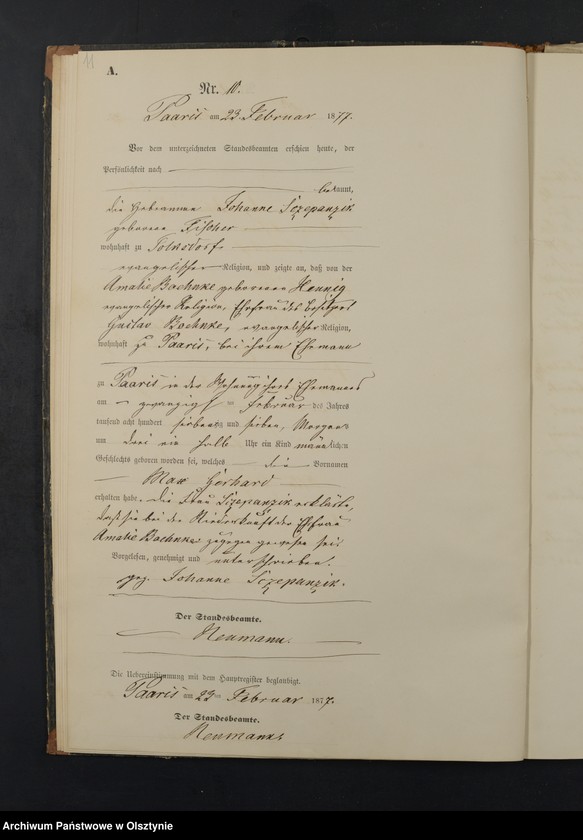 11
A.
Nr. 10.
Paaris am 23. Februar 1877.
Vor dem unterzeichneten Standesbeamten erschien heute, der
Persönlichkeit nach
bekannt,
die Hebeamme Johanne Sczepanzik
geborene Fischer
wohnhaft zu Tolksdorf
evangelischer Religion, und zeigte an, daß von der
Amalie Boehnke geborenen Hennig
evangelischer Religion, Ehefrau des Besitzers
Gustav Boehnke, evangelischer Religion,
wohnhaft zu Paaris, bei ihrem Ehemann
zu Paaris in der Wohnung ihres Ehemannes
am zwanzigsten Februar des Jahres
tausend acht hundert siebenzig und sieben, Morgens
um drei ein halb Uhr ein Kind männlichen
Geschlechts geboren worden sei, welches die Vornamen
Max Gerhard
erhalten habe. Die Frau Sczepanzik erklärte,
daß sie bei der Niederkunft der Ehefrau
Amalie Boehnke zugegen gewesen sei.
Vorgelesen, genehmigt und unterschrieben.
gez. Johanne Sczepanzik.
Der Standesbeamte.
Neumann.
Die Uebereinstimmung mit dem Hauptregister beglaubigt.
Paaris am 23ten Februar 1877.
Der Standesbeamte.
Neumann
Archiwum Państwowe w Olsztynie